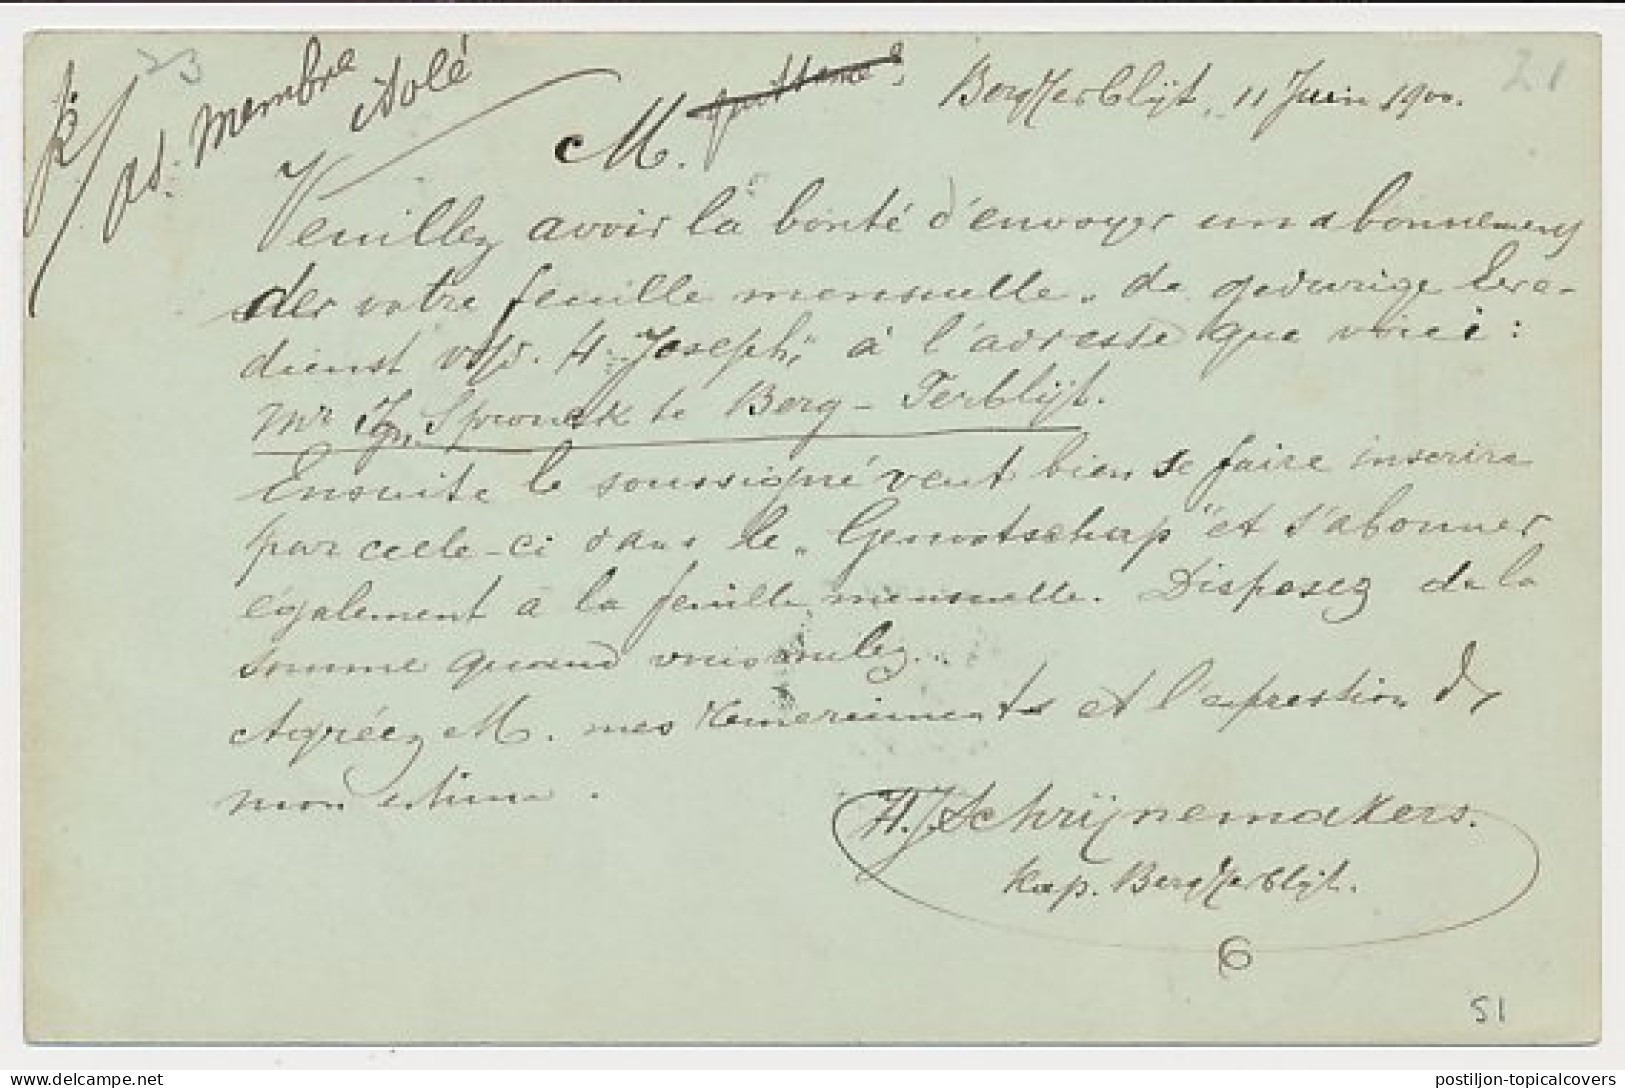 23
21
ad. membre
isolé
Berg Terblijt, 11 Juin 1900.
M.
Veuillez avoir la bonté d'envoyer un abonnement
der votre feuille mensuelle „de gedurige Eere-
dienst v/d. H. Joseph," à l'adresse que voici :
Mr Ign. Spronck te Berg - Terblijt.
Ensuite le soussigné veut bien se faire inscrire
par celle-ci dans le „Genootschap" et s'abonner
également à la feuille mensuelle. Disposez de la
somme quand vous voulez.
Agréez M. mes remerciments et l'expression de
mon estime.
H. J. Schrijnemakers.
Kap. Berg Terblijt.
6
51
postiljon-topicalcovers
© www.delcampe.net